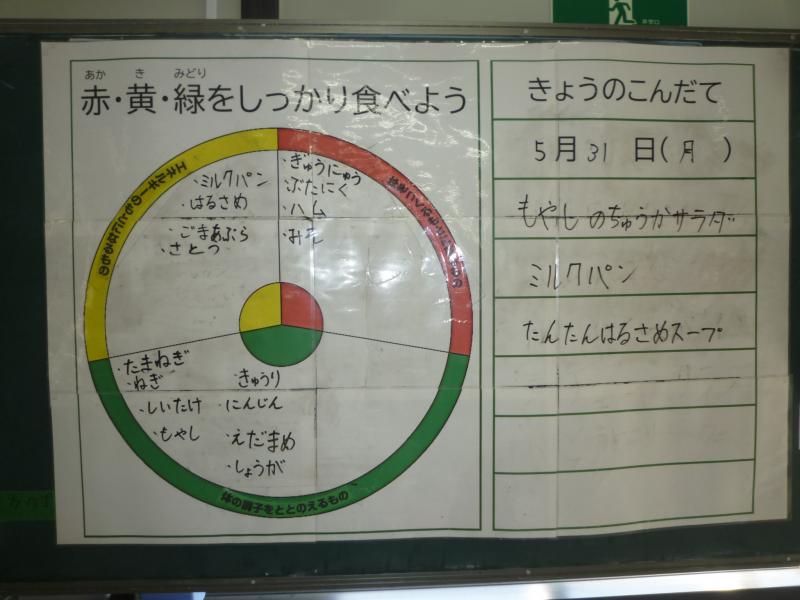 非常口
あか き みどり
赤・黄・緑をしっかり食べよう
エネルギーのもとになるもの
・ミルクパン
・はるさめ
・ごまあぶら
・さとう
・ぎゅうにゅう
・ぶたにく
・ハム
・みそ
・たまねぎ
・ねぎ
・しいたけ
・もやし
・きゅうり
・にんじん
・えだまめ
・しょうが
体の調子をととのえるもの
きょうのこんだて
5月31日(月)
もやしのちゅうかサラダ
ミルクパン
たんたんはるさめスープ